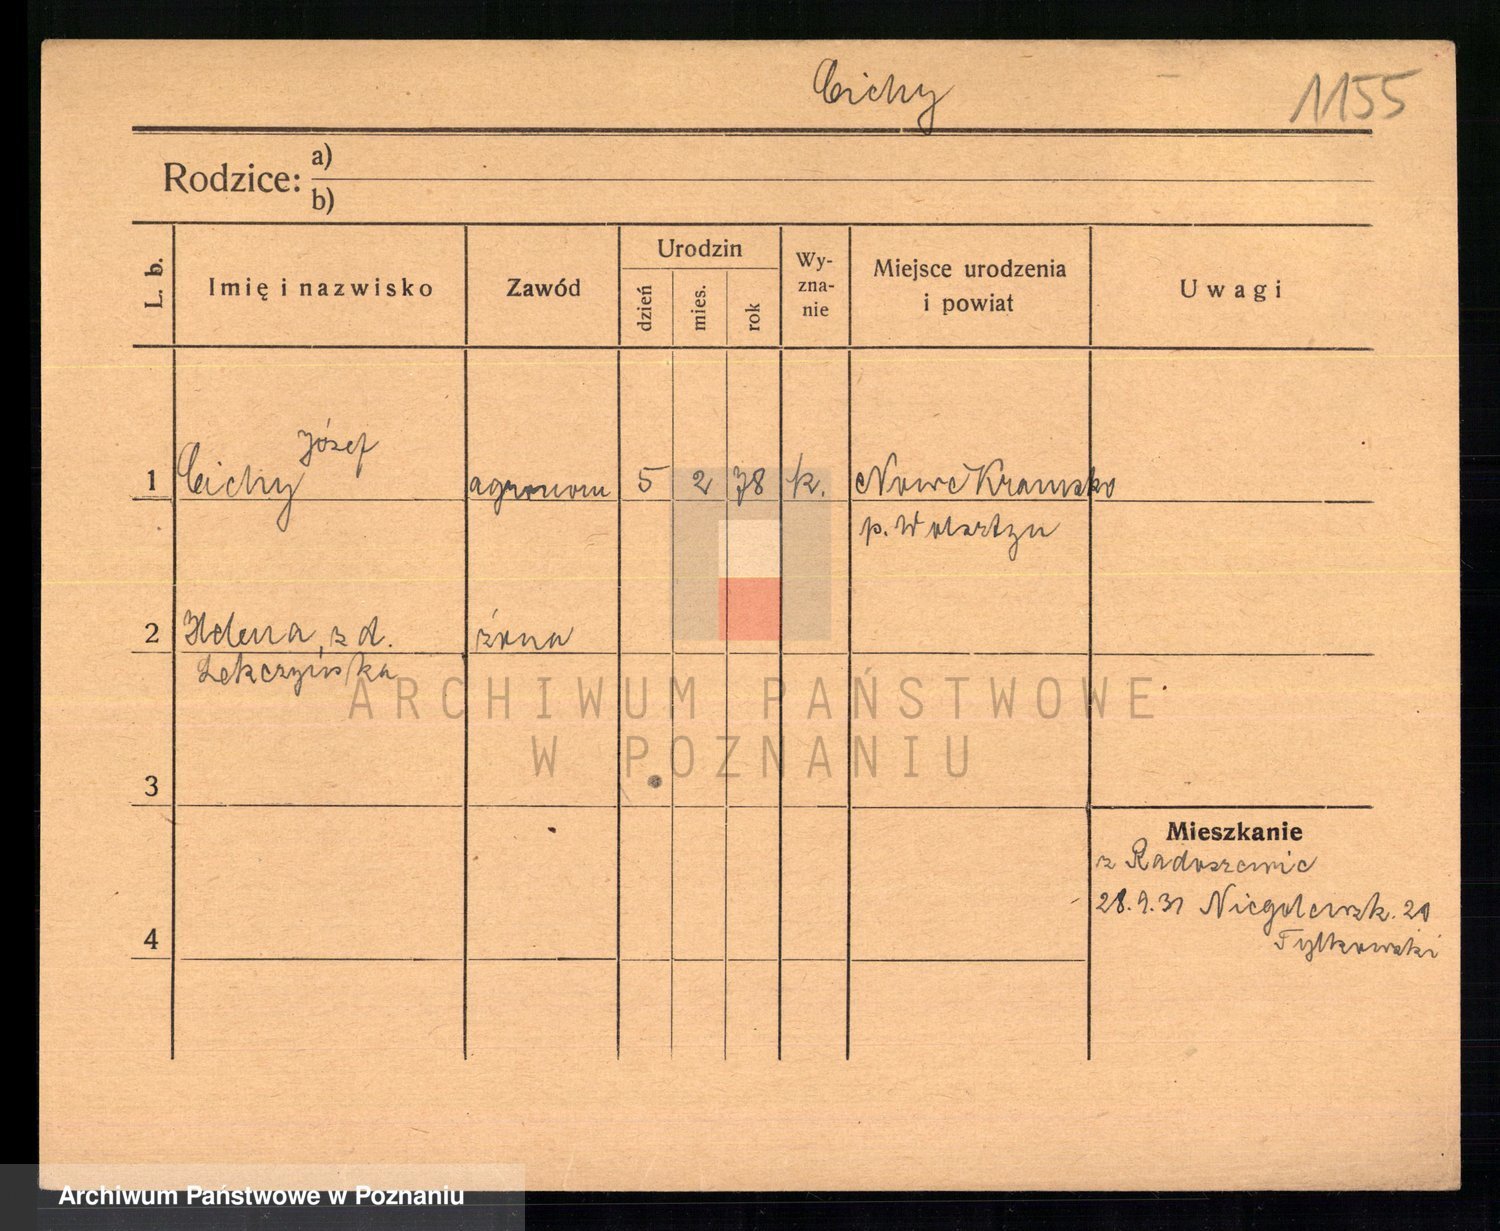 Cichy
1155
Rodzice: a)
b)
L. b.
Imię i nazwisko
Zawód
Urodzin
dzień
mies.
rok
Wy-
zna-
nie
Miejsce urodzenia
i powiat
Uwagi
Józef
1 Cichy agronom 5 2 78 k. Nowe Kramsko
p. Wolsztyn
2 Helena, z d. żona
3
4
Mieszkanie
z Radoszewic
28.9.31 Niegolewsk. 20
Tylkowski
ARCHIWUM PAŃSTWOWE
W POZNANIU
Archiwum Państwowe w Poznaniu